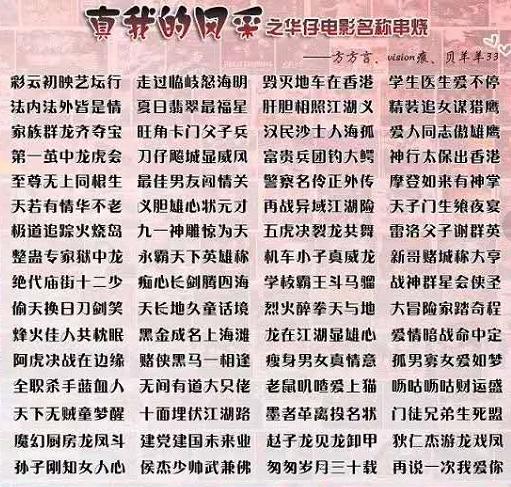 真我的风采之华仔电影名称串烧
——方方言、vision痕、贝羊羊33
彩云初映艺坛行 走过临岐怒海明 毁灭地车在香港 学生医生爱不停
法内法外皆是情 夏日翡翠最福星 肝胆相照江湖义 精装追女谍猎鹰
家族群龙齐夺宝 旺角卡门父子兵 汉民沙士人海孤 爱人同志傲雄鹰
第一茧中龙虎会 刀仔飚城显威风 富贵兵团钓大鳄 神行太保出香港
至尊无上同根生 最佳男友闯情关 警察名伶正外传 摩登如来有神掌
天若有情华不老 义胆雄心状元才 再战异域江湖险 天子门生飨夜宴
极道追踪火烧岛 九一神雕惊为天 五虎决裂龙共舞 雷洛父子谢群英
整蛊专家狱中龙 永霸天下英雄称 机车小子真威龙 新哥赌城称大亨
绝代庙街十二少 痴心长剑腾四海 学校霸王斗马骝 战神群星会侠圣
偷天换日刀剑笑 天长地久童话境 烈火醉拳天与地 大冒险家踏奇程
烽火佳人共枕眠 黑金成名上海滩 龙在江湖显雄心 爱情暗战命中定
阿虎决战在边缘 赌侠黑马一相逢 瘦身男女真情意 孤男寡女爱如梦
全职杀手蓝血人 无间有道大只佬 老鼠叽喳爱上猫 呖咕呖咕财运盛
天下无贼童梦醒 十面埋伏江湖路 墨者革离投名状 门徒兄弟生死盟
魔幻厨房龙凤斗 建党建国未来业 赵子龙见龙卸甲 狄仁杰游龙戏凤
孙子刚知女人心 侯杰少帅武兼佛 匆匆岁月三十载 再说一次我爱你